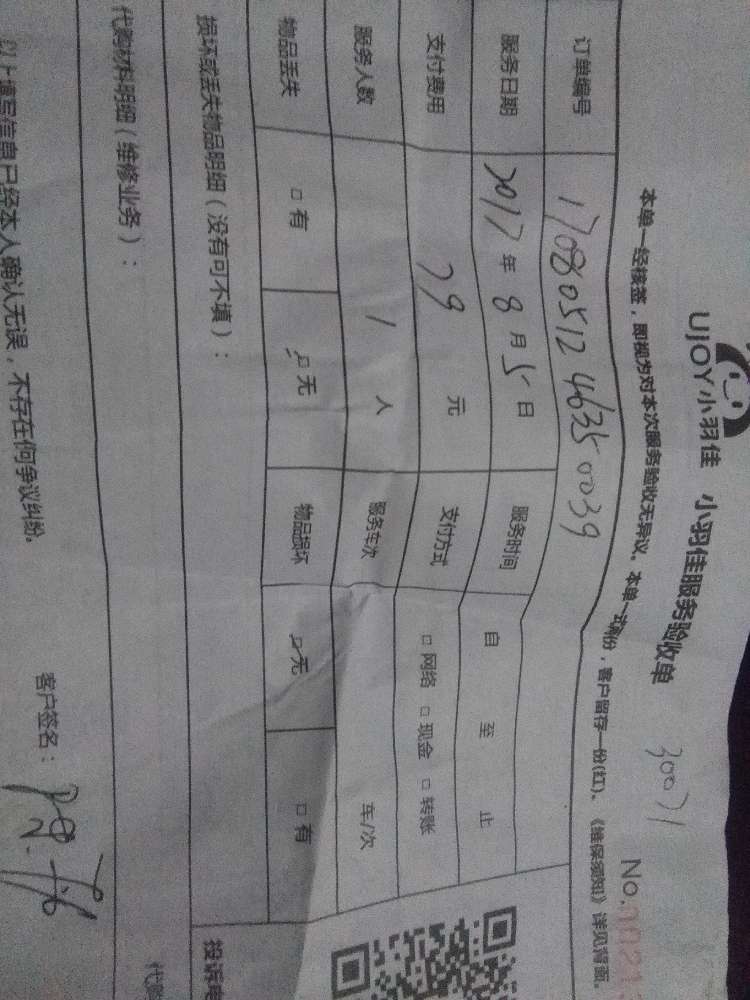 UJOY小羽佳 小羽佳服务验收单 30071
No.0021
本单一经核签，即视为对本次服务验收无异议。本单一式两份，客户留存一份(红)、《维保须知》详见背面。
订单编号 170805124635 0039
服务日期 2017年8月5日 服务时间 自 至 止
支付费用 79 元 支付方式 □网络 □现金 □转账
服务人数 1 人 服务车次 车/次
物品丢失 □有 ☑无 物品损坏 ☑无 □有
损坏或丢失物品明细（没有可不填）：
投诉电
代购材料明细（维修业务）：
代购
以上填写信息已经本人确认无误，不存在何争议纠纷。 客户签名：